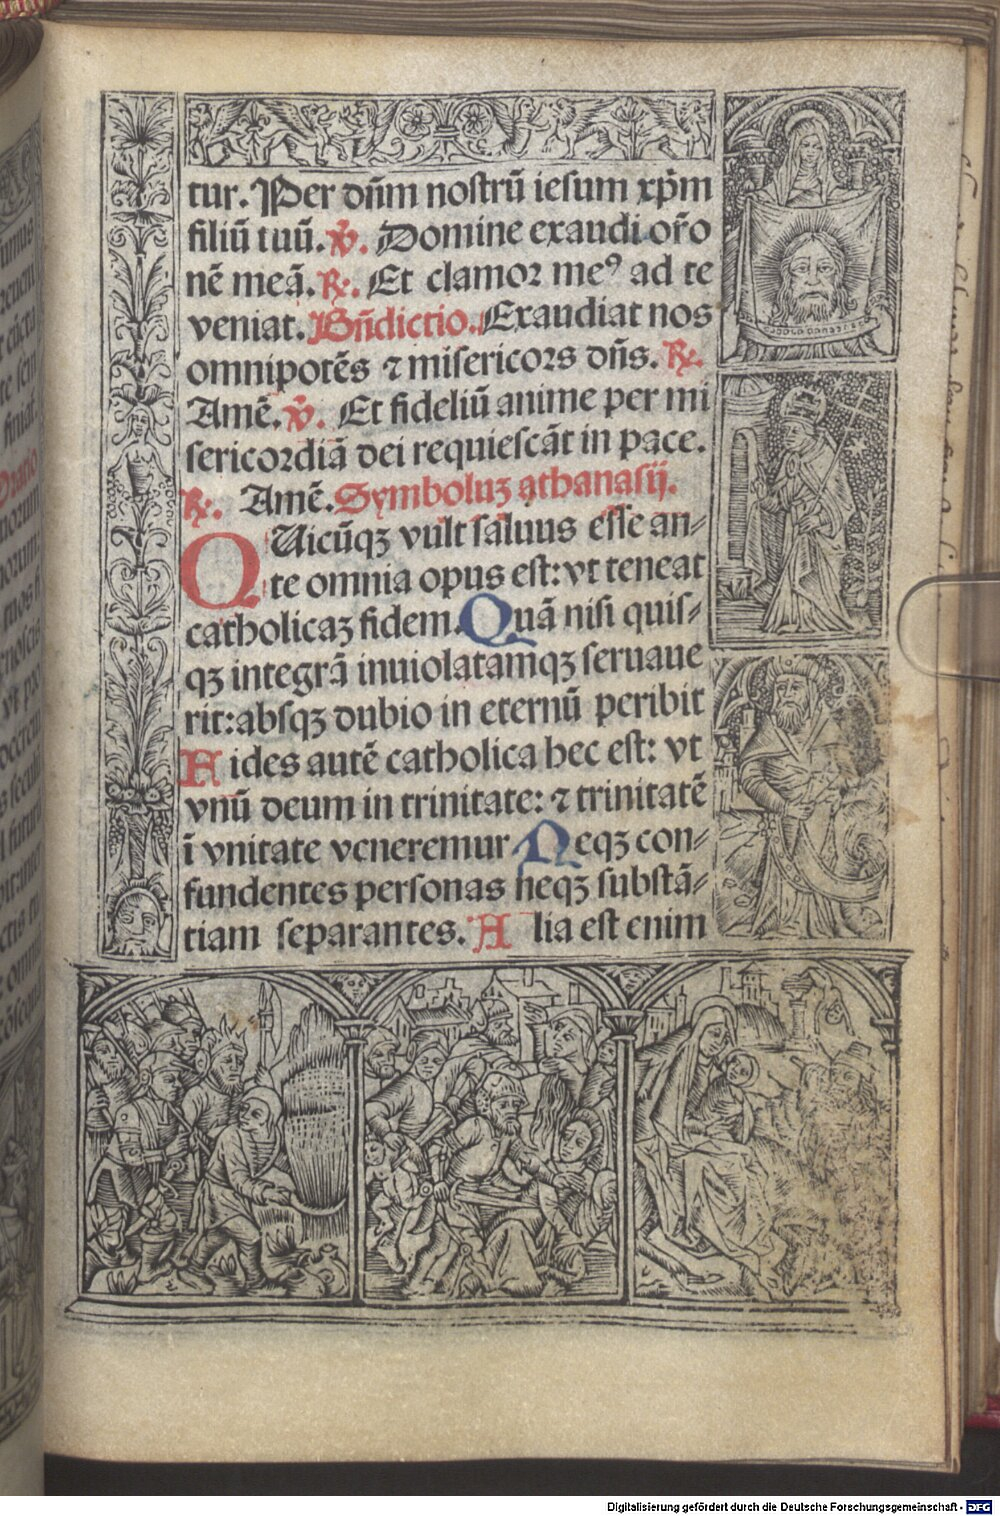 tur. Per dn̄m nostrū iesum xp̄m
filiū tuū. ℣. Domine exaudi or̄o
nē meā. ℟. Et clamor meꝰ ad te
veniat. Bn̄dictio. Exaudiat nos
omnipotēs ⁊ misericors dn̄s. ℟.
Amē. ℣. Et fideliū anime per mi
sericordiā dei requiescāt in pace.
℟. Amē. Symboluꝫ athanasij.
QUicūqꝫ vult saluus esse an⸗
te omnia opus est: vt teneat
catholicaꝫ fidem. Quā nisi quis⸗
qꝫ integrā inuiolatamqꝫ seruaue
rit: absqꝫ dubio in eternū peribit
Fides autē catholica hec est: vt
vnū deum in trinitate: ⁊ trinitatē
ī vnitate veneremur. Neqꝫ con⸗
fundentes personas neqꝫ substā⸗
tiam separantes. Alia est enim
Digitalisierung gefördert durch die Deutsche Forschungsgemeinschaft - DFG